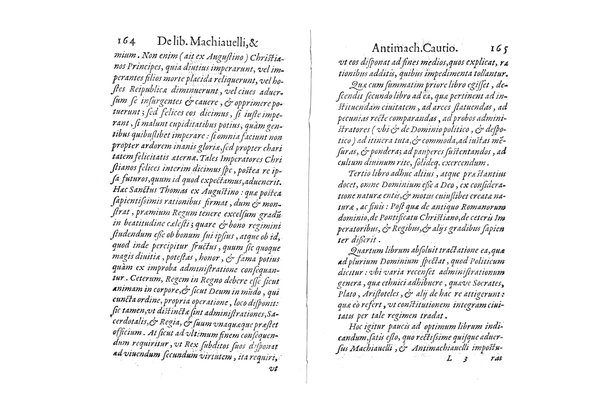 164 De lib. Machiauelli, &
mium. Non enim (ait ex Augustino) Christia-
nos Principes, quia diutius imperarunt, vel im-
perantes filios morte placida reliquerunt, vel ho-
stes Reipublicæ diminuerunt, vel ciues aduer-
sum se insurgentes & cauere, & opprimere po-
tuerunt; sed felices eos dicimus, si iuste impe-
rant, si malunt cupiditatibus potius, quàm gen-
tibus quibuslibet imperare: si omnia faciunt non
propter ardorem inanis gloriæ, sed propter chari
tatem felicitatis æternæ. Tales Imperatores Chri
stianos felices interim dicimus spe, postea re ip-
sa futuros, quum id quod expectamus, aduenerit.
Hæc Sanctus Thomas ex Augustino: qua postea
sapientissimis rationibus firmat, dum & mon-
strat, præmium Regum tenere excelsum gradũ
in beatitudine cælesti; & quare bono regimini
studendum esse ob bonum sui ipsus, atque ob id,
quod inde percipitur fructus, quum sic quoque
magis diuitiæ, potestas, honor, & fama potius
quàm ex improba administratione consequan-
tur. Ceterum, Regem in Regno debere esse sicut
animam in corpore, & sicut Deum in mũdo, qui
cuncta ordine, propria operatione, loco disponit:
sic tamen, vt distinctæ sint administrationes, Sa-
cerdotalis, & Regia, & suum vnaquæque præstet
officium. At sicut ad vltimum finem consequen-
dum requiritur, vt Rex subditos suos disponat
ad viuendum secundum virtutem, ita requiri,
vt
Antimach. Cautio. 165
vt eos disponat ad fines medios, quos explicat, ra
tionibus additis, quibus impedimenta tollantur.
Quæ cum summatim priore libro egisset, de-
scendit secundo libro ad ea, quæ pertinent ad in-
stituendam ciuitatem, ad arces statuendas, ad
pecunias recte comparandas, ad probos admini-
stratores (vbi & de Dominio politico, & despo-
tico) ad itinera tuta, & commoda, ad iustas mẽ-
suras, & pondera; ad pauperes sustentandos, ad
cultum diuinum rite, solideq. exercendum.
Tertio libro adhuc altius, atque præstantius
docet, omne Dominium esse a Deo, ex considera-
tione naturæ entis, & motus cuiuslibet creatæ na-
turæ, ac finis: Post quæ de antiquo Romanorum
dominio, de Pontificatu Christiano, de ceteris Im
peratoribus, & Regibus, & alijs gradibus sapien
ter disserit.
Quartum librum absoluit tractatione ea, quæ
ad plurium Dominium spectat, quod Politicum
dicitur: vbi varia recenset administrationum
genera, quæ ethnici adhibuere, quæve Socrates,
Plato, Aristoteles, & alij de hac re attigerunt:
quæ eò refert, vt constitutionem integram ciui-
tatis per tale regimen tradat.
Hoc igitur paucis ad optimum librum indi-
candum, satis esto, quo rectissime quisque aduer-
sus Machiauelli, & Antimachiauelli impostu-
L 3 ras